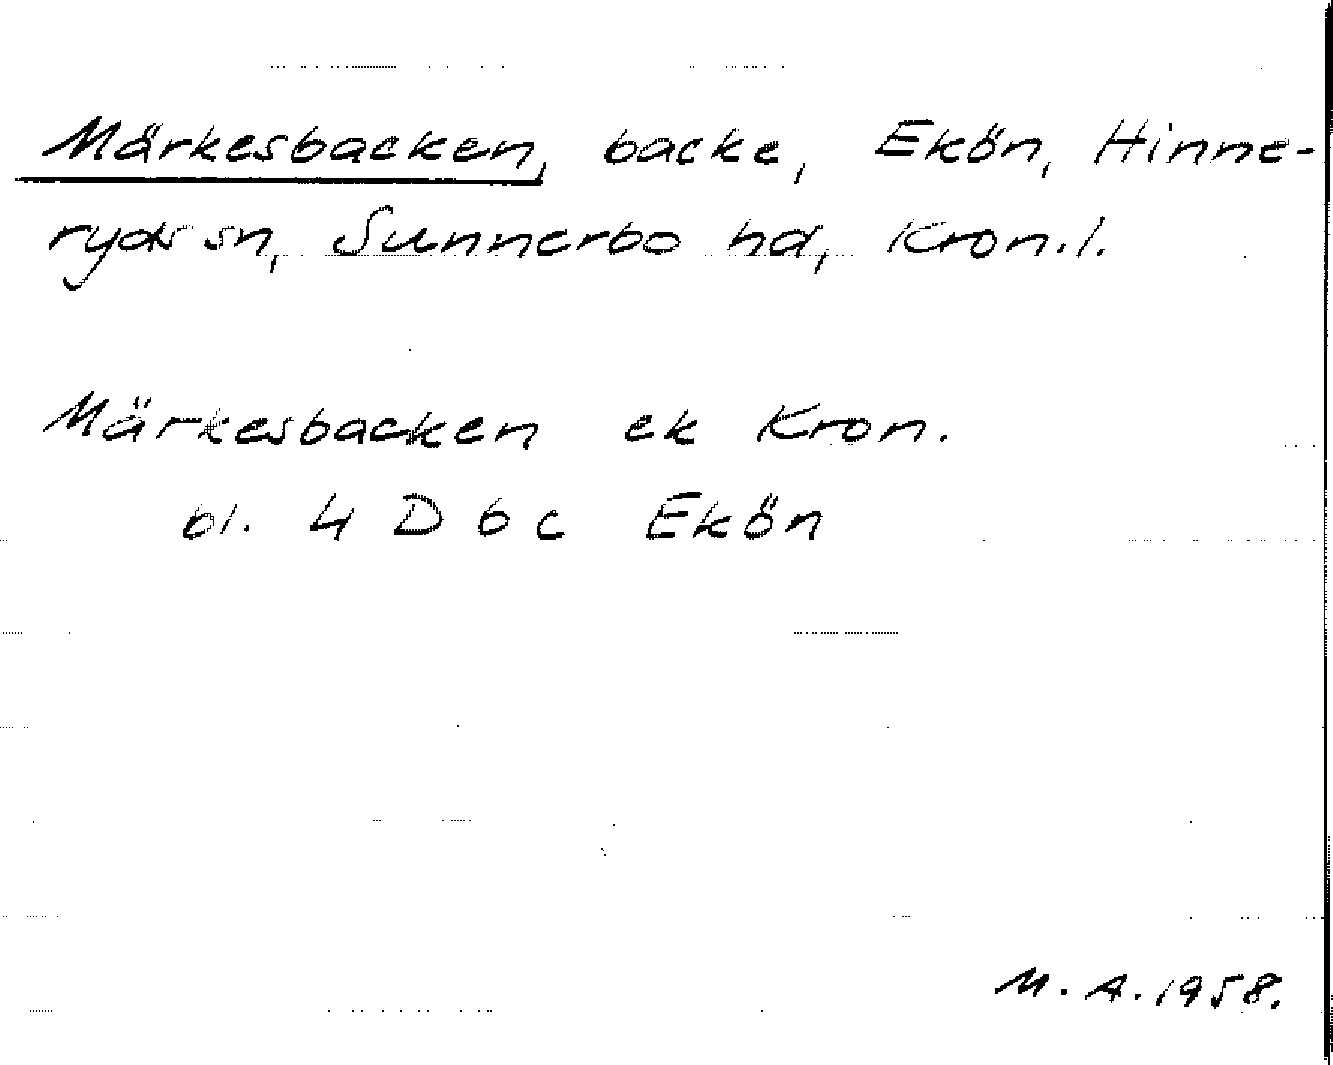 Märkesbacken, backe, Ekön, Hinne-
ryds sn, Sunnerbo hd, Kron.l.
Märkesbacken ek Kron.
bl. 4 D b c Ekön
M. A. 1958.